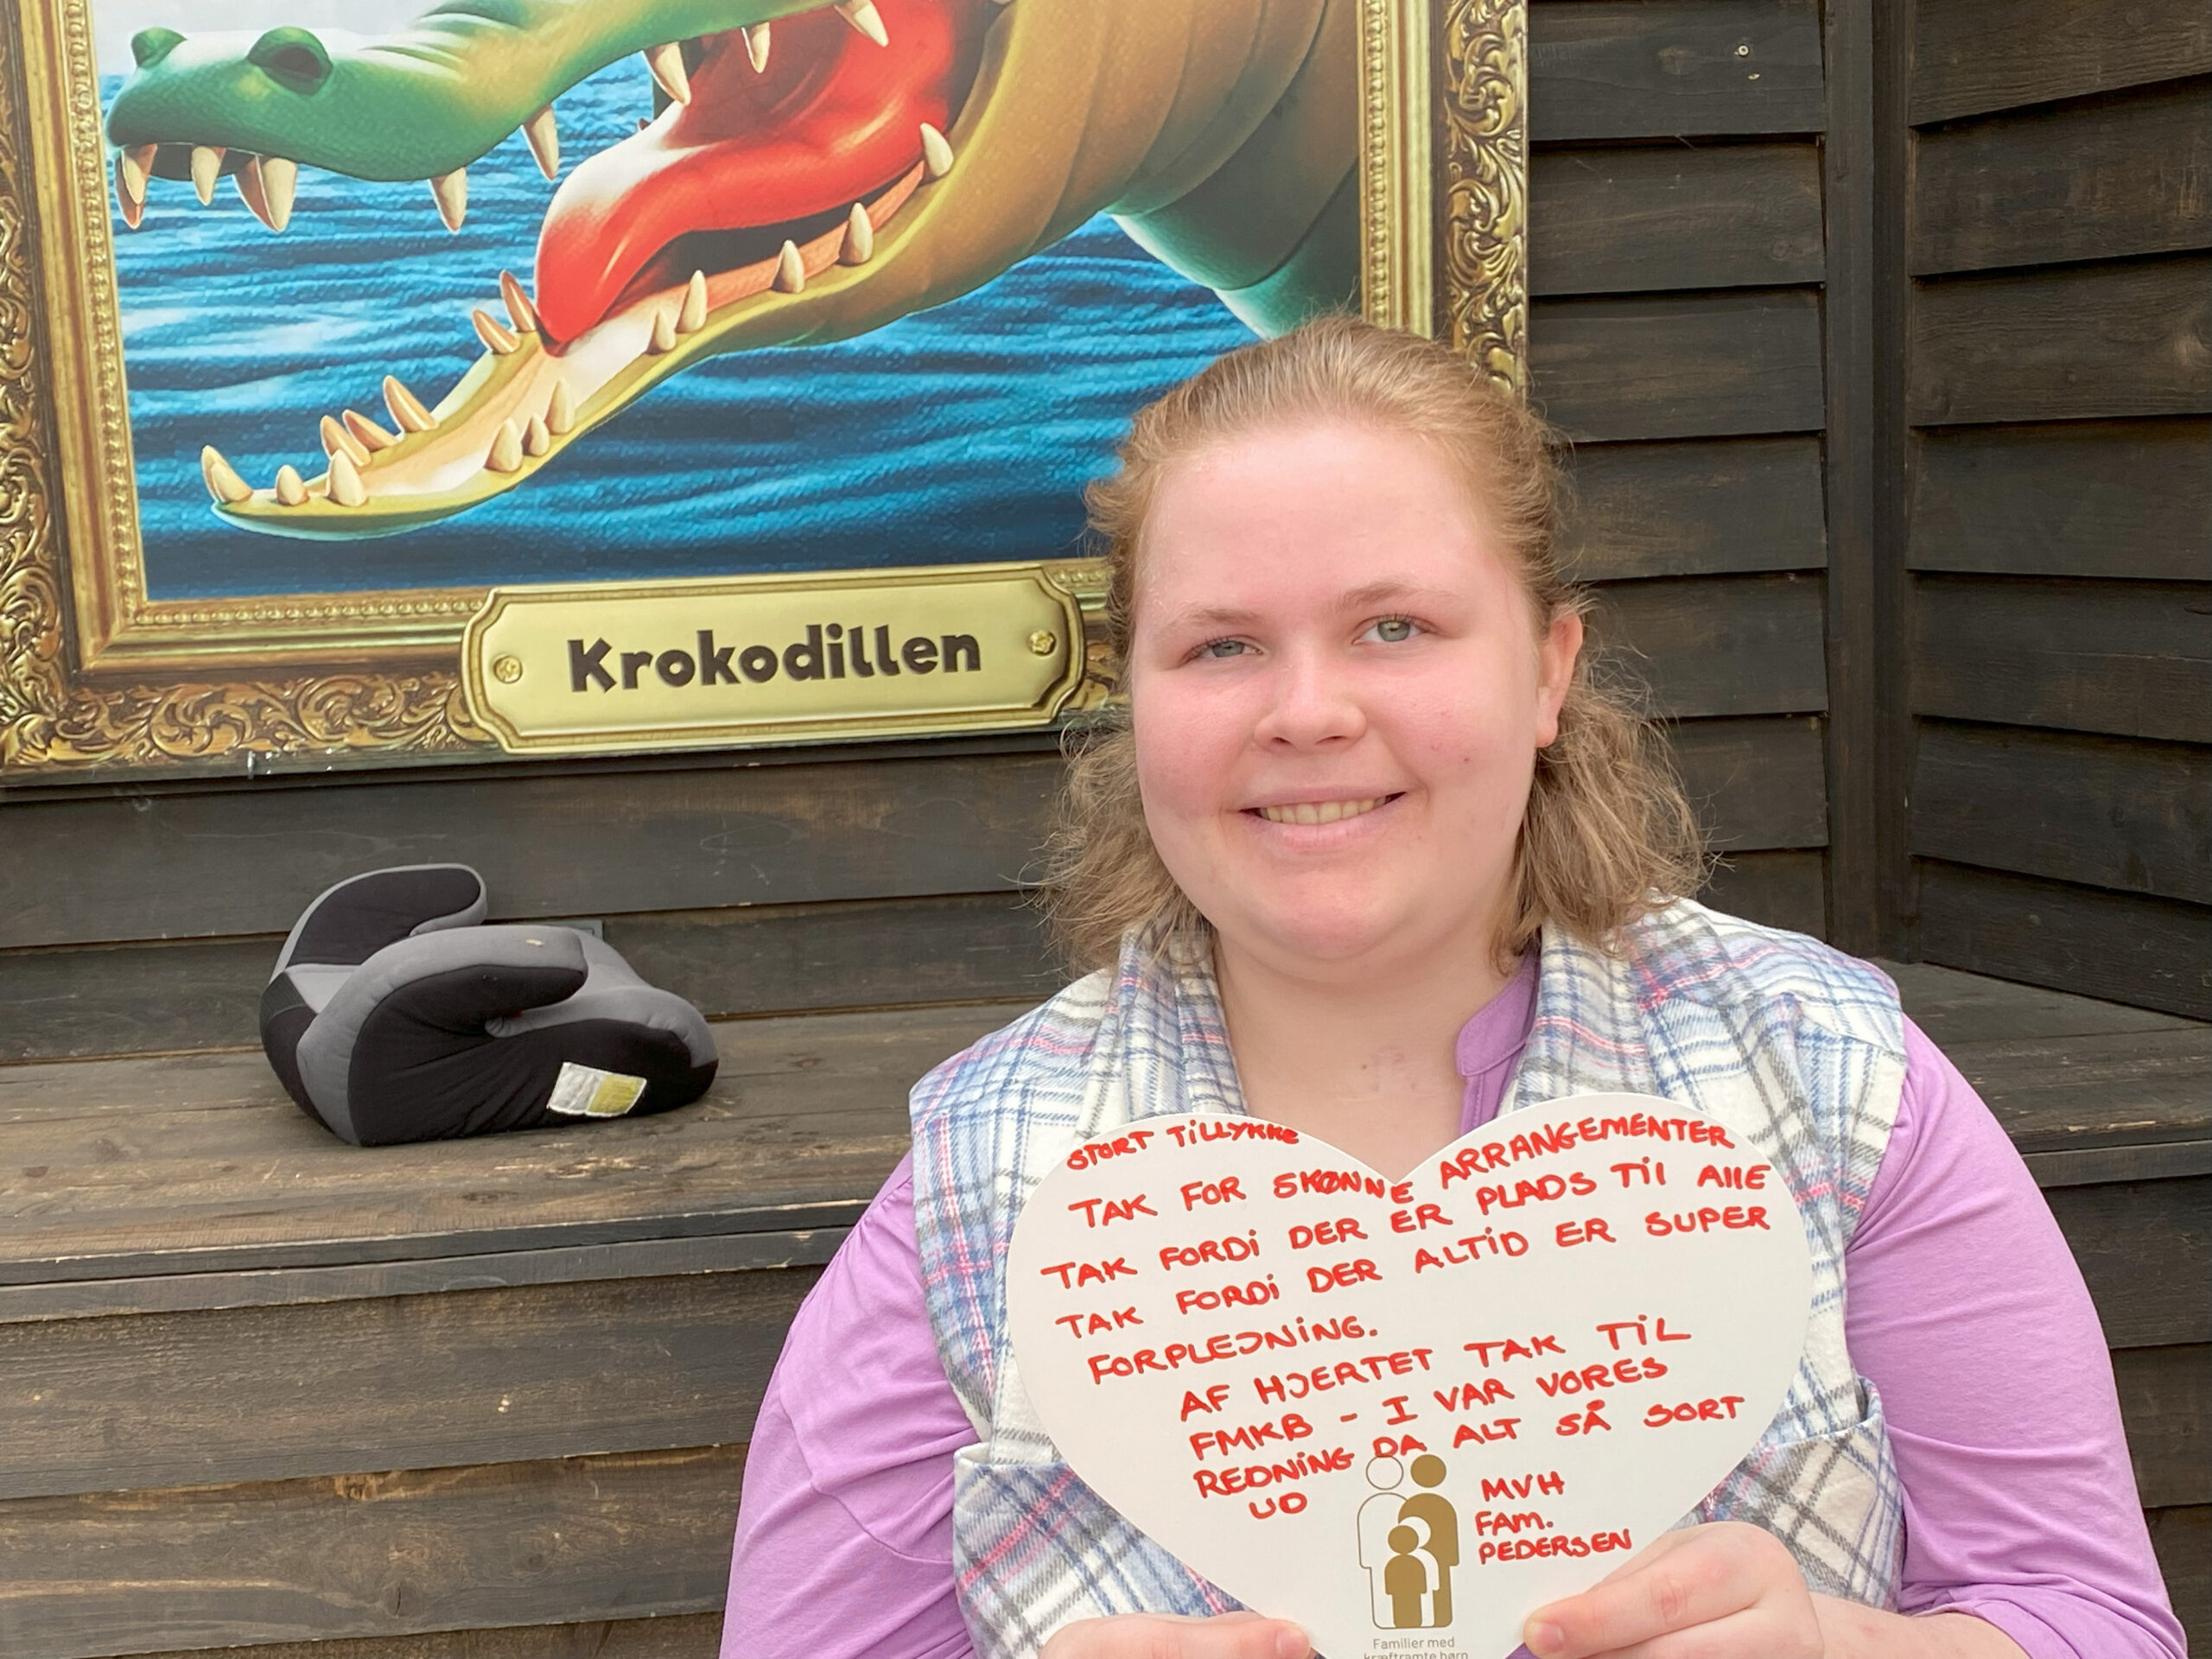 Krokodillen
STORT TILLYKKE
TAK FOR SKØNNE ARRANGEMENTER
TAK FORDI DER ER PLADS TIL ALLE
TAK FORDI DER ALTID ER SUPER
FORPLEJNING.
AF HJERTET TAK TIL
FMKB - I VAR VORES
REDNING DA ALT SÅ SORT
UD
MVH
FAM.
PEDERSEN
Familier med
kræftramte børn